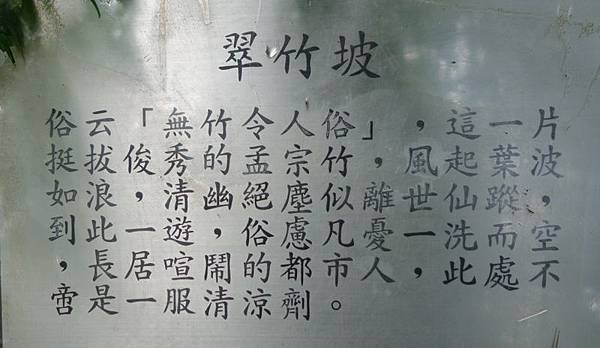 翠竹坡
俗云「無竹令人俗」，這一片
挺拔俊秀的孟宗竹，風起葉波
如浪，清幽絕塵似離世仙蹤，
到此一遊，俗慮凡憂一洗而空
，長居喧鬧的都市人，此處不
啻是一服清涼劑。